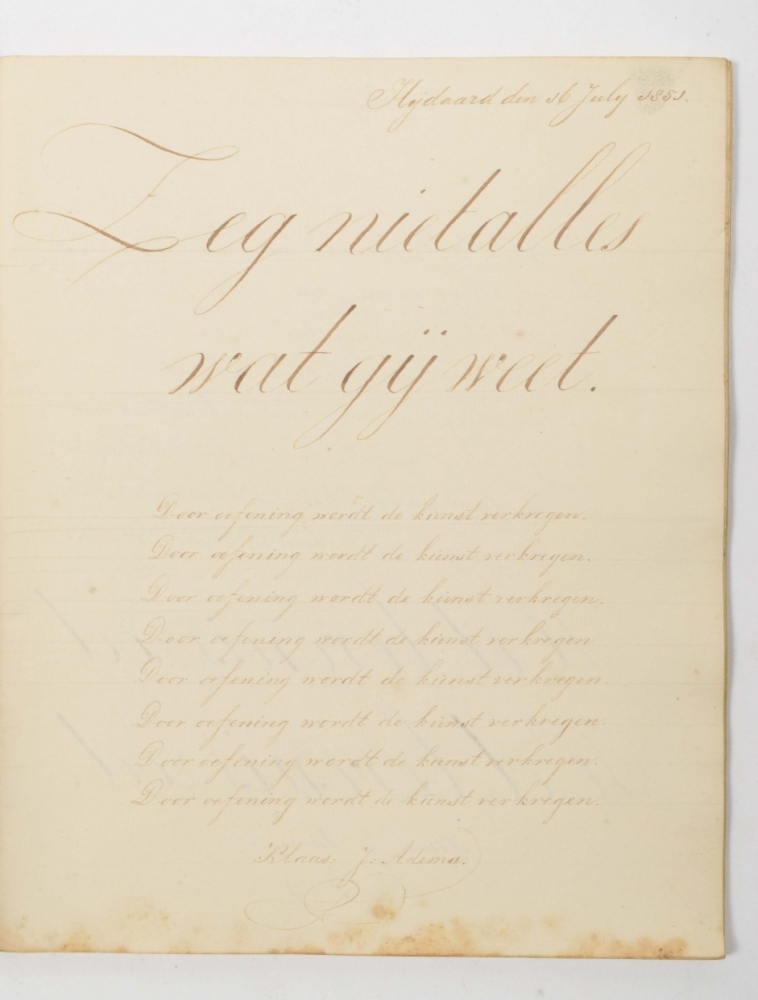 Hijdaard den 16 July 1851.
Zeg niet alles
wat gij weet.
Door oefening wordt de kunst verkregen.
Door oefening wordt de kunst verkregen.
Door oefening wordt de kunst verkregen.
Door oefening wordt de kunst verkregen
Door oefening wordt de kunst verkregen.
Door oefening wordt de kunst verkregen.
Door oefening wordt de kunst verkregen.
Door oefening wordt de kunst verkregen.
Klaas. J. Adema.